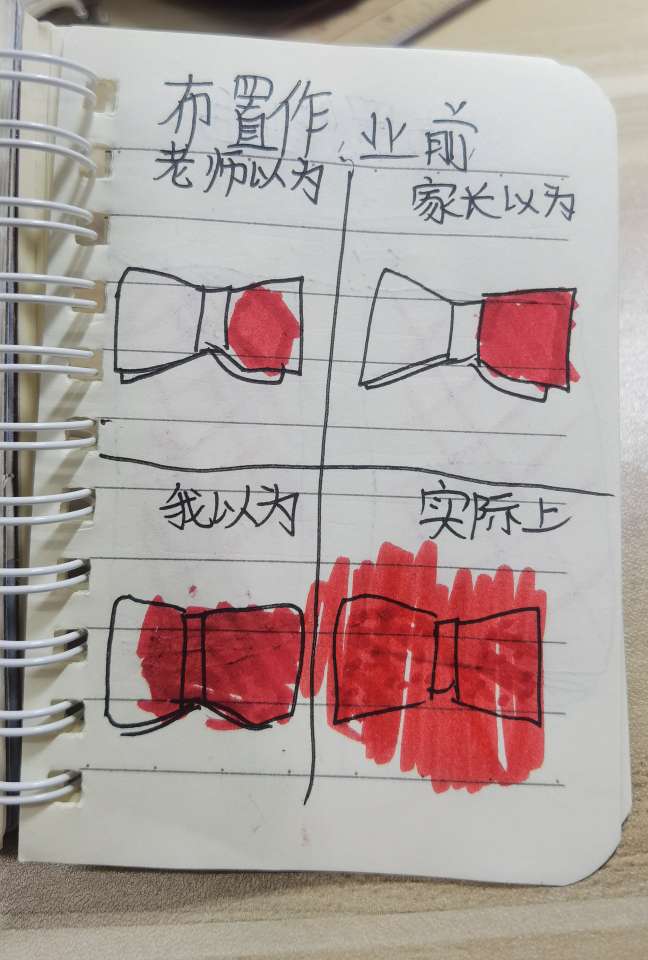 布置作业前
老师以为
家长以为
我以为
实际上